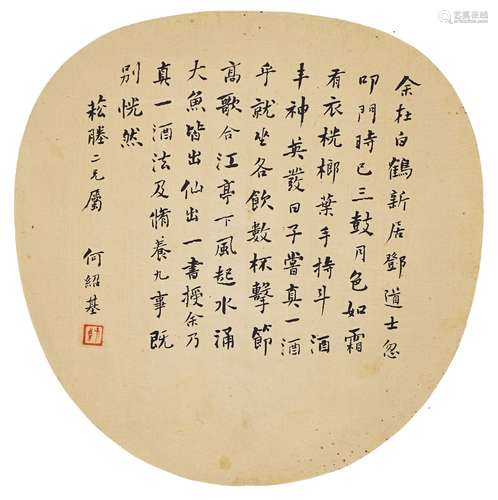 余在白鶴新居鄧道士忽
叩門時已三鼓月色如霜
有衣桄榔葉手持斗酒
丰神英發曰子嘗真一酒
乎就坐各飲數杯擊節
高歌合江亭下風起水涌
大魚皆出仙出一書授余乃
真一酒法及脩養九事既
別恍然
菘塍二兄屬
何紹基